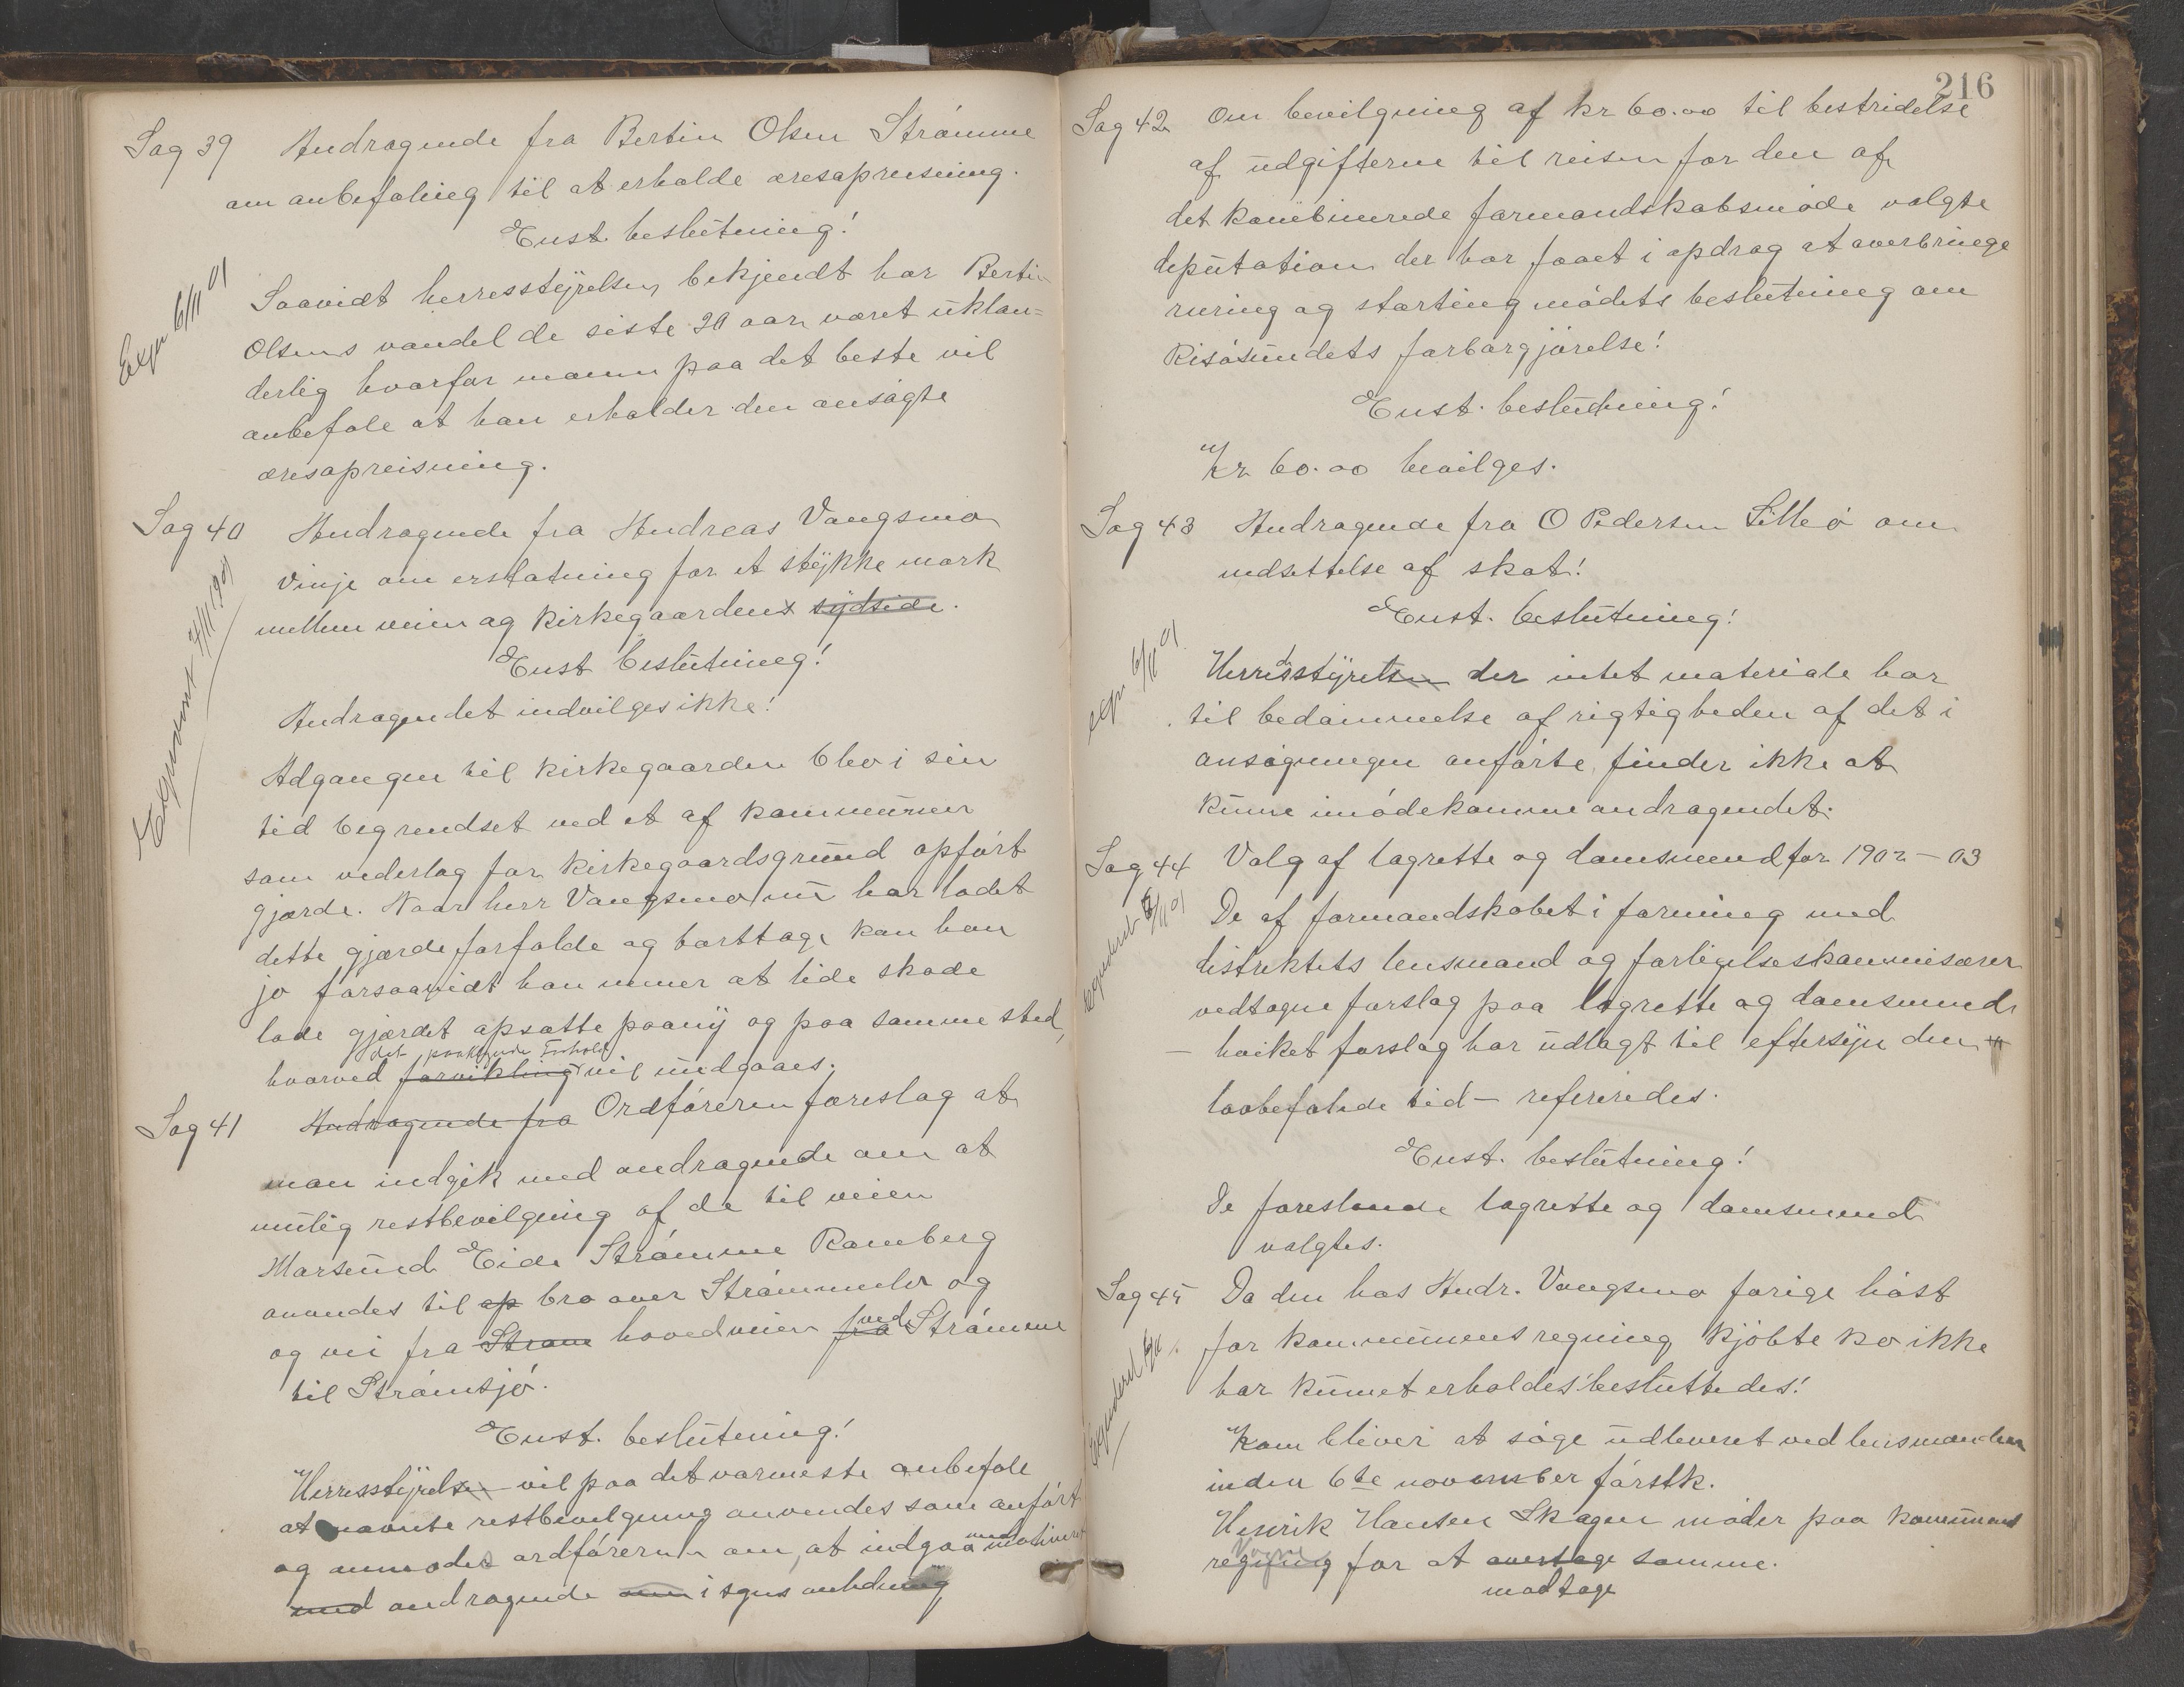 Sag 39 Andragende fra Bertin Olsen Strømme
om anbefaling til at erholde æresopreisning.
Enst. beslutning!
Expr 6/11 01
Saavidt herresstyrelsen bekjendt har Bertin
Olsens vandel de siste 20 aar været uklan=
derlig hvorfor mann paa det beste vil
anbefale at han erholder den ansøgte
æresopreisning.
Sag 40 Andragende fra Andreas Vangsmo
Vinje om erstatning for et stykke mark
mellem veien og kirkegaardens sydside.
Enst beslutning!
Andragendet indvilges ikke!
Adgangen til kirkegaarden blev i sin
tid begrendset ved et af kommunen
som vederlag for kirkegaardsgrund opført
gjærde. Naar herr Vangsmo nu har ladet
dette gjærde forfalde og borttage kan han
jo forsaavidt han mener at lide skade
lade gjærdet opsætte paany og paa samme sted,
det paaklagede Forhold
hvorved forvikling vil undgaaes.
Sag 41 Andragende fra Ordføreren foreslog at
man indgik med andragende om at
mulig restbevilgning af de til veien
Marsund Eide Strømme Ramberg
anvendes til op bro over Strømmelv og
og vei fra Strøm hovedveien fra ved Strømme
til Strømsjø.
Enst. beslutning!
Herresstyrelsen vil paa det varmeste anbefale
at nævnte restbevilgning anvendes som anført
og anmoder ordføreren om at indgaa med motiveret
med andragende om i sagens anledning
216
Sag 42 Om bevilgning af kr 60.00 til bestridelse
af udgifterne til reisen for den af
det kombinerede formandskabsmøde valgte
deputation der har faaet i opdrag at overbringe
rering og storting mødets beslutning om
Risøsundets farbargjørelse!
Enst. beslutning!
Kr 60.00 bevilges.
Sag 43 Andragende fra O Pedersen Lilleø om
nedsettelse af skat!
Enst. beslutning!
exp. 6/11 01
Herredsstyrelsen der intet materiale har
til bedømmelse af rigtigheden af det i
ansøgningen anførte finder ikke at
kunne imødekomme andragendet.
Sag 44 Valg af lagrette og domsmend for 1902–03
De af formandskabet i forening med
distriktets lensmand og forligelseskommisærer
vedtagne forslag paa lagrette og domsmend
– hvilket forslag har udlagt til eftersyn den
lovbefalede tid – refereredes.
Enst. beslutning!
De foreslaaede lagrette og domsmend
valgtes.
Sag 45 Da den hos Andr. Vangsmo forige høst
for kommunens regning kjøbte ko ikke
har kunnet erholdes besluttedes!
Koen bliver at søge udleveret ved lensmanden
inden 6te november førstk.
Henrik Hansen Skagen møder paa kommunens
regning Vegne for at overtage samme.
modtage